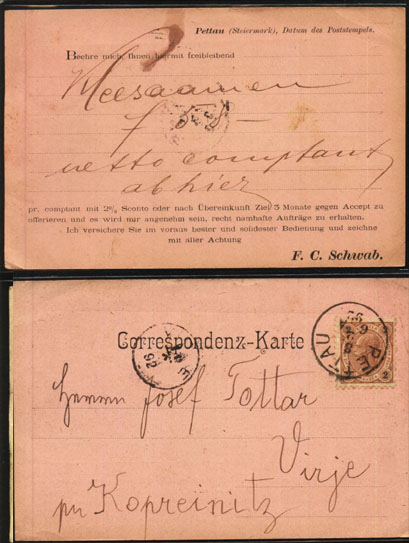 Pettau (Steiermark), Datum des Poststempels.
Beehre mich, Ihnen hiermit freibleibend
Kleesaamen
f —
netto comptant
ab hier
pr. comptant mit 2% Sconto oder nach Übereinkunft Ziel 3 Monate gegen Accept zu
offerieren und es wird mir angenehm sein, recht namhafte Aufträge zu erhalten.
Ich versichere Sie im voraus bester und solidester Bedienung und zeichne
mit aller Achtung
F. C. Schwab.
Correspondenz-Karte
PETTAU
Herrn Josef Tottar
Virje
pr Kopreinitz